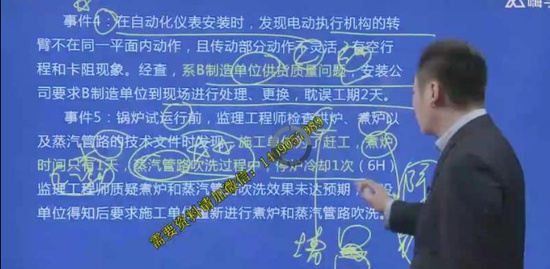 嗨
事件4:在自动化仪表安装时,发现电动执行机构的转
臂不在同一平面内动作,且传动部分动作不灵活,有空行
程和卡阻现象。经查,系B制造单位供货质量问题,安装公
司要求B制造单位到现场进行处理、更换,耽误工期2天。
事件5:锅炉试运行前,监理工程师检查烘炉、煮炉以
及蒸汽管路的技术文件时发现,施工单位 赶工,煮炉
时间只有1天,蒸汽管路吹洗过程中,停炉冷却1次(6H)
监理工程师质疑煮炉和蒸汽管路吹洗效果未达预期, 设
单位得知后要求施工单位重新进行煮炉和蒸汽管路吹洗。
需要资料请加微信: